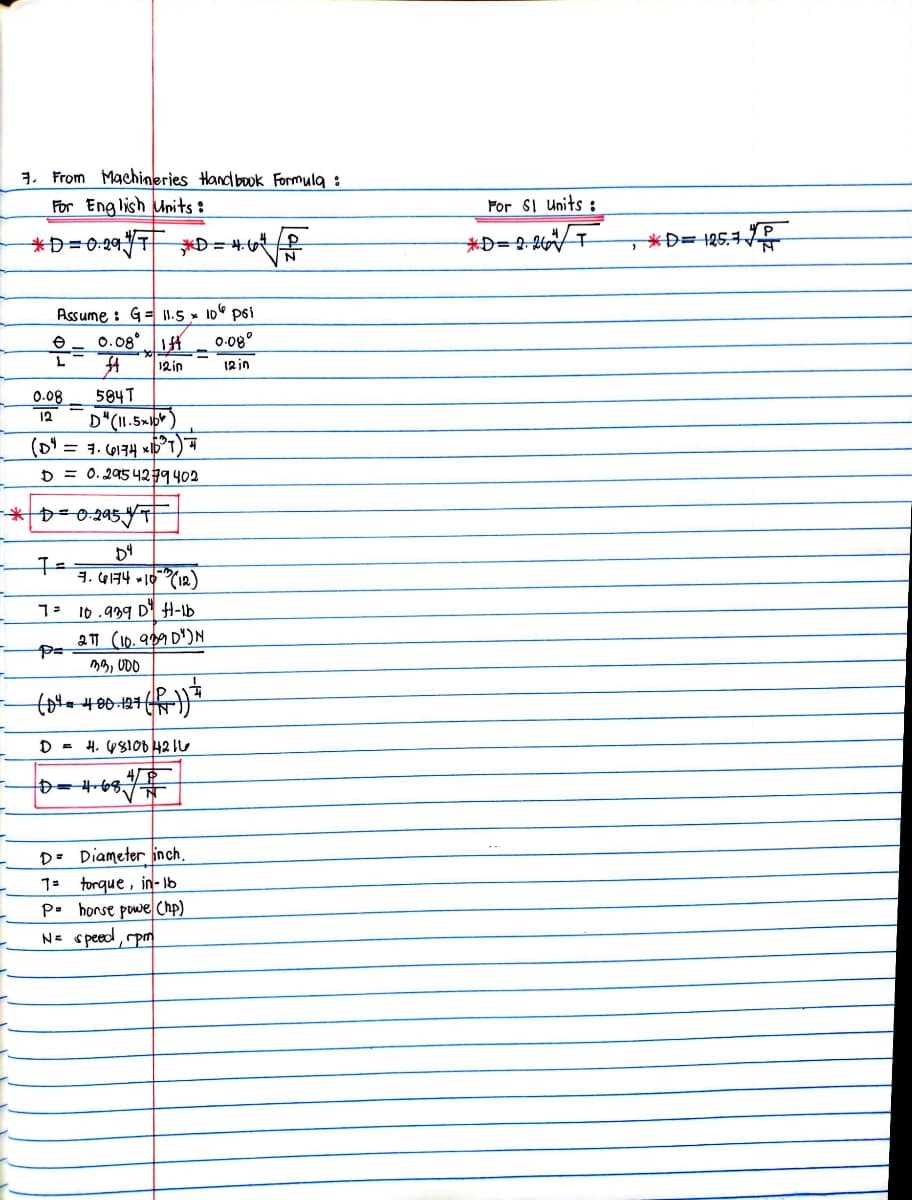 7. From Machineries Handbook Formula :
For English Units :
For SI units :
* D = 0.29 ∜T , * D = 4.6 ∜(P/N)
* D = 2.26 ∜T , * D = 125.7 ∜(P/N)
Assume : G = 11.5 × 10⁶ psi
θ/L = 0.08°/ft × 1ft/12in = 0.08°/12in
0.08/12 = 584T/D⁴(11.5×10⁶)
(D⁴ = 7.6174 ×10⁻³T)^1/4
D = 0.2954279402
* D = 0.295 ∜T
T = D⁴/7.6174 ×10⁻³(12)
T = 10.939 D⁴ ft-lb
P = 2π (10.939 D⁴)N/33,000
(D⁴ = 480.127 (P/N))^1/4
D = 4.681084216
D = 4.68 ∜(P/N)
D = Diameter inch.
T = torque, in-lb
P = horse powe (hp)
N = speed, rpm